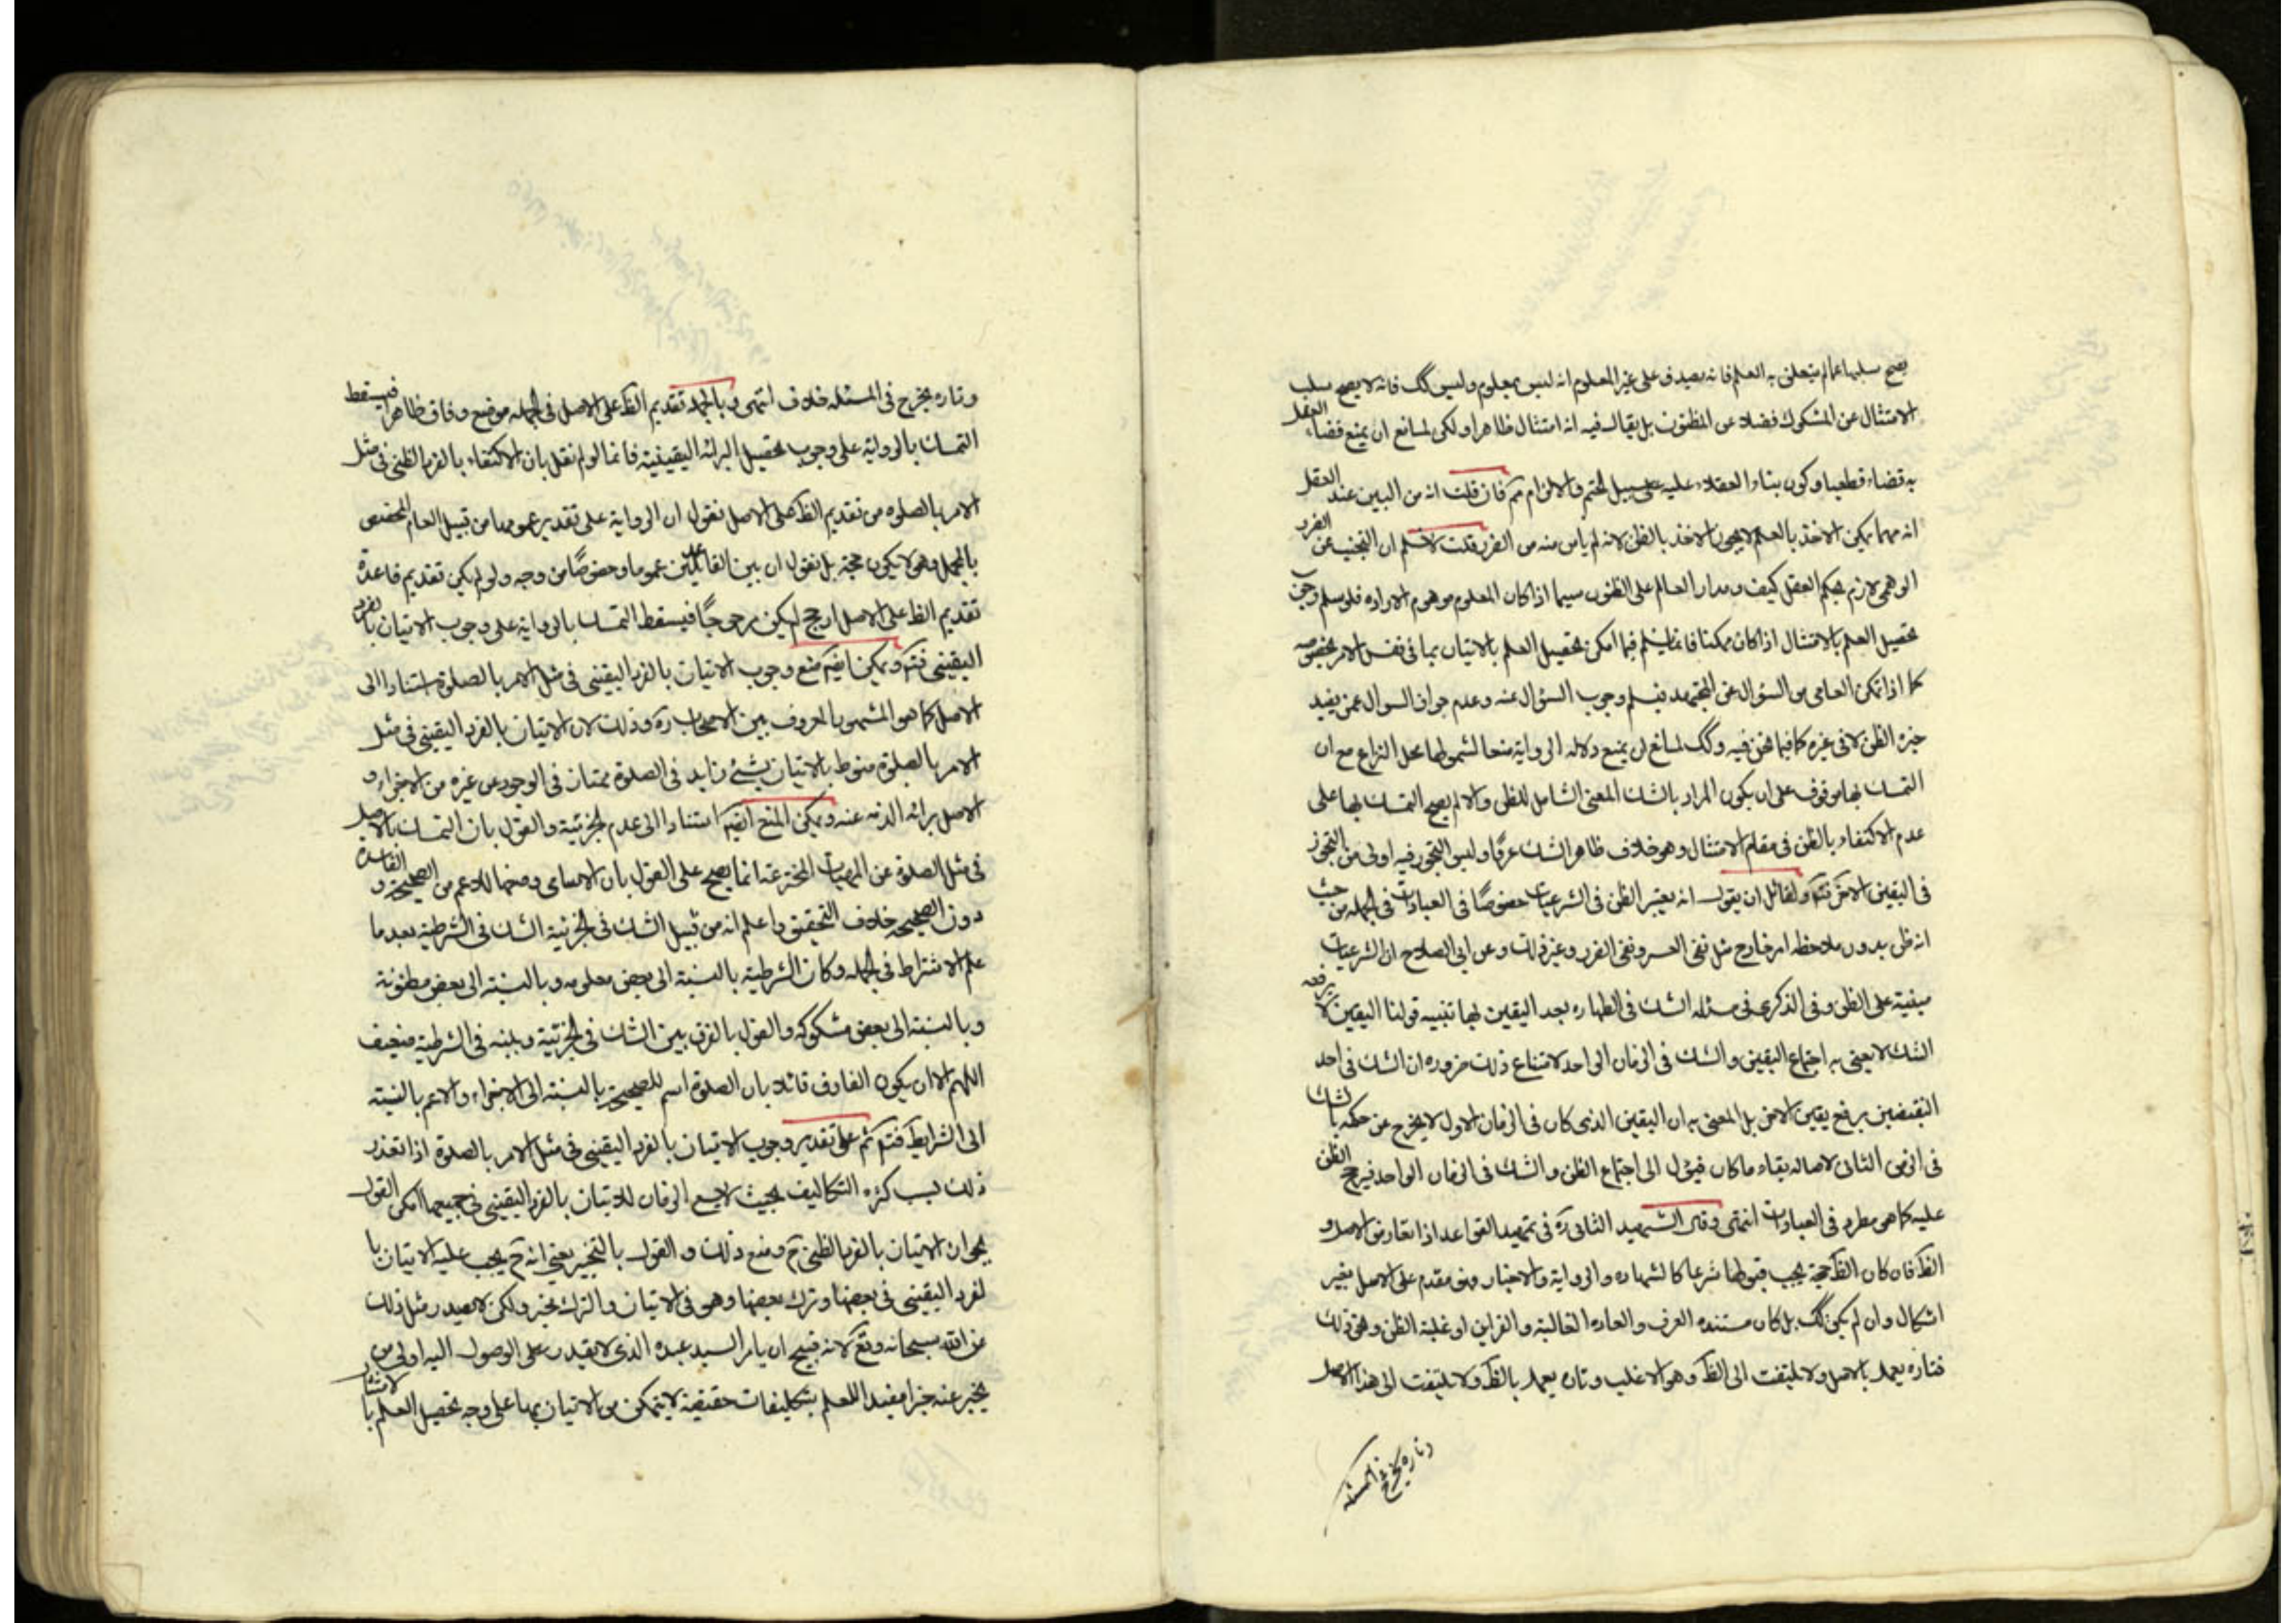 يصح سلبها عما لم يتعلق به العلم فانه يصدق على غير المعلوم انه ليس بمعلوم وليس كك فانه لا يصح سلب
الامتثال عن المشكوك فضلا عن المظنون بل يقال فيه انه امتثال ظاهرا ولكن لمانع ان يمنع قضاء العقل
به قضاء قطعيا وكون بناء العقلاء عليه على سبيل الحتم والالزام مم فان قلت انه من البين عند العقل
انه مهما يمكن الاخذ بالعلم لا يجوز الاخذ بالظن لانه لم يامن منه من الضرر قلت لا نسلم ان التجنب عن الضرر
الوهمي لازم بحكم العقل كيف ومدار العالم على الظنون سيما اذا كان المعلوم موهوم الارادة فلو سلم وجوب
تحصيل العلم بالامتثال اذا كان ممكنا فانما يسلم فيما امكن تحصيل العلم بالاتيان بما في نفس الامر بخصوصه
كما اذا تمكن العامي من السؤال عن المجتهد فيسلم وجوب السؤال عنه وعدم جواز السوال عمن يفيد
خبره الظن لا في غيره كما فيما نحن فيه وكك لمانع ان يمنع دلالة الرواية منعا لشمولها محل النزاع مع ان
التمسك بها موقوف على ان يكون المراد بالشك المعنى الشامل للظن والا لم يصح التمسك بها على
عدم الاكتفاء بالظن في مقام الامتثال وهو خلاف ظاهر الشك عرفا وليس التجوز فيه اولى من التجوز
في اليقين الاخر فتم ولقائل ان يقول انه يعتبر الظن في الشرعيات خصوصًا في العبادات في الجمله من حيث
انه ظن بدون ملاحظه امر خارج مثل نفى العسر ونفى الضرر وغير ذلك وعن ابي الصلاح ان الشرعيات
مبنية على الظن وفى الذكرى في مسئله الشك في الطهاره بعد اليقين بها تنبيه قولنا اليقين لا يرفعه
الشك لا يعنى به اجتماع اليقين والشك في الزمان الواحد لامتناع ذلك ضروره ان الشك في احد
النقيضين يرفع يقين الاخر بل المعنى به ان اليقين الذى كان في الزمان الاول لا يخرج عن حكمه بالشك
في الزمن الثانى لاصاله بقاء ما كان فيؤل الى اجتماع الظن والشك في الزمان الواحد فيرجح الظن
عليه كما هو مطرد في العبادات انتهى وقال الشهيد الثانى ره في تمهيد القواعد اذا تعارض الاصل و
الظ فان كان الظ حجة يجب قبولها شرعا كالشهاده والرواية والاخبار فهو مقدم على الاصل بغير
اشكال وان لم يكن كك بل كان مستنده العرف والعاده الغالبة والقراين او غلبة الظن ونحو ذلك
فتاره يعمل بالاصل ولا يلتفت الى الظ وهو الاغلب وتاره يعمل بالظ ولا يلتفت الى هذا الاصل
وتاره يخرج في المسئله
وتاره يخرج في المسئله خلاف انتهى وبالجملة تقديم الظ على الاصل في الجمله موضع وفاق ظاهرا فيسقط
التمسك بالرواية على وجوب تحصيل البرائة اليقينية فانما لو لم نقل بان الاكتفاء بالفرد الظني في مثل
الامر بالصلوة من تقديم الظ على الاصل نقول ان الرواية على تقدير عمومها من قبيل العام المخصص
بالمجمل وهو لا يكون حجة بل نقول ان بين القاعدتين عموما وخصوصًا من وجه ولو لم يكن تقديم قاعدة
تقديم الظ على الاصل ارجح لم يكن مرجوحًا فيسقط التمسك بالرواية على وجوب الاتيان بالفرد
اليقيني فتم ويمكن ايضا منع وجوب الاتيان بالفرد اليقينى في مثل الامر بالصلوة استنادا الى
الاصل كما هو المشهور المعروف بين الاصحاب ره وذلك لان الاتيان بالفرد اليقيني في مثل
الامر بالصلوة منوط بالاتيان بشئ زايد في الصلوة ممتاز في الوجود عن غيره من الاجزاء و
الاصل برائة الذمه عنه ويمكن المنع ايضا استنادا الى عدم الجزئية والقول بان التمسك بالاصل
في مثل الصلوة من المهيات المخترعة انما يصح على القول بان الاسامى وضعها للاعم من الصحيحة و الفاسدة
دون الصحيحه خلاف التحقيق واعلم انه من قبيل الشك في الجزئية الشك في الشرطية بعد ما
علم الاشتراط في الجمله وكان الشرطية بالنسبة الى بعض معلومه وبالنسبة الى بعض مظنونة
وبالنسبة الى بعض مشكوكه والقول بالفرق بين الشك في الجزئية وبينه في الشرطية ضعيف
اللهم الا ان يكون الفارق قائلا بان الصلوة اسم للصحيحة بالنسبة الى الاجزاء والاعم بالنسبة
الى الشرايط فتم ثم على تقدير وجوب الاتيان بالفرد اليقيني في مثل الامر بالصلوة اذا تعذر
ذلك لسبب كثره التكاليف بحيث لا يسع الزمان للاتيان بالفرد اليقيني في جميعها امكن القول
بجواز الاتيان بالفرد الظني ح ومنع ذلك والقول بالتخيير يعني انه ح يجب عليه الاتيان با
لفرد اليقيني في بعضها وترك بعضها وهو في الاتيان والترك مخير ولكن لا يصدر مثل ذلك
من الله سبحانه وتع لانه قبيح ان يامر السيد عبده الذى لا يقدر على الوصول اليه اولى من
يخبر عنه خبرا مفيدا للعلم بتكليفات حقيقية لا يتمكن من الاتيان بها على وجه تحصيل العلم بالامتثال